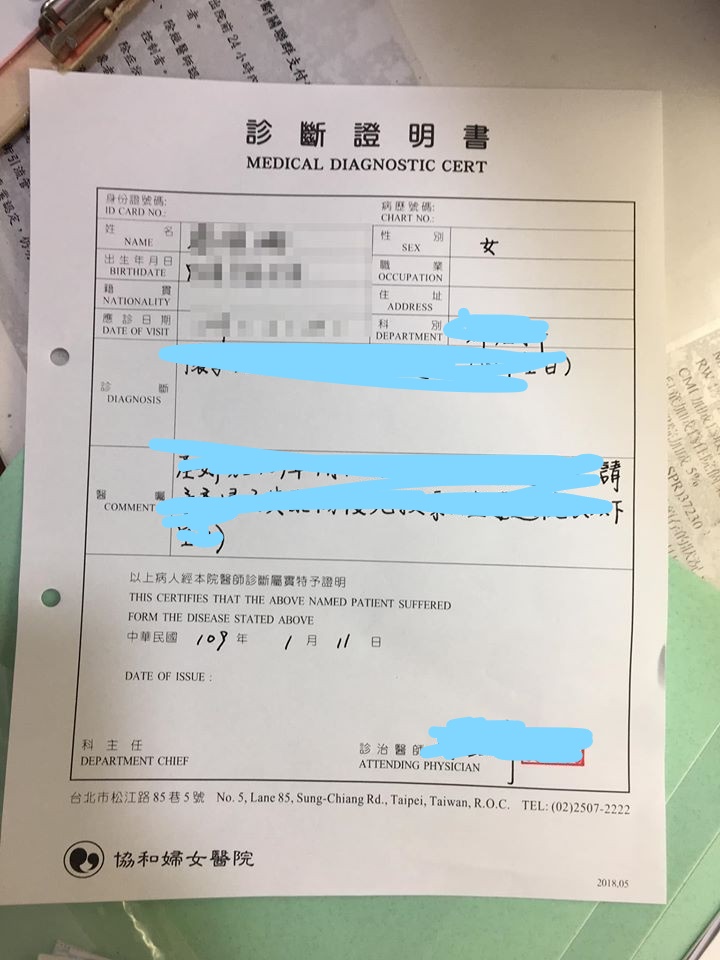 診斷證明書
MEDICAL DIAGNOSTIC CERT
身份證號碼:
ID CARD NO.:
病歷號碼:
CHART NO.:
姓名
NAME
性別
SEX
女
出生年月日
BIRTHDATE
職業
OCCUPATION
籍貫
NATIONALITY
住址
ADDRESS
應診日期
DATE OF VISIT
科別
DEPARTMENT
診斷
DIAGNOSIS
醫囑
COMMENT
請
以上病人經本院醫師診斷屬實特予證明
THIS CERTIFIES THAT THE ABOVE NAMED PATIENT SUFFERED
FORM THE DISEASE STATED ABOVE
中華民國 109 年 1 月 11 日
DATE OF ISSUE :
科主任
DEPARTMENT CHIEF
診治醫師
ATTENDING PHYSICIAN
台北市松江路85巷5號 No. 5, Lane 85, Sung-Chiang Rd., Taipei, Taiwan, R.O.C. TEL: (02)2507-2222
協和婦女醫院
2018.05